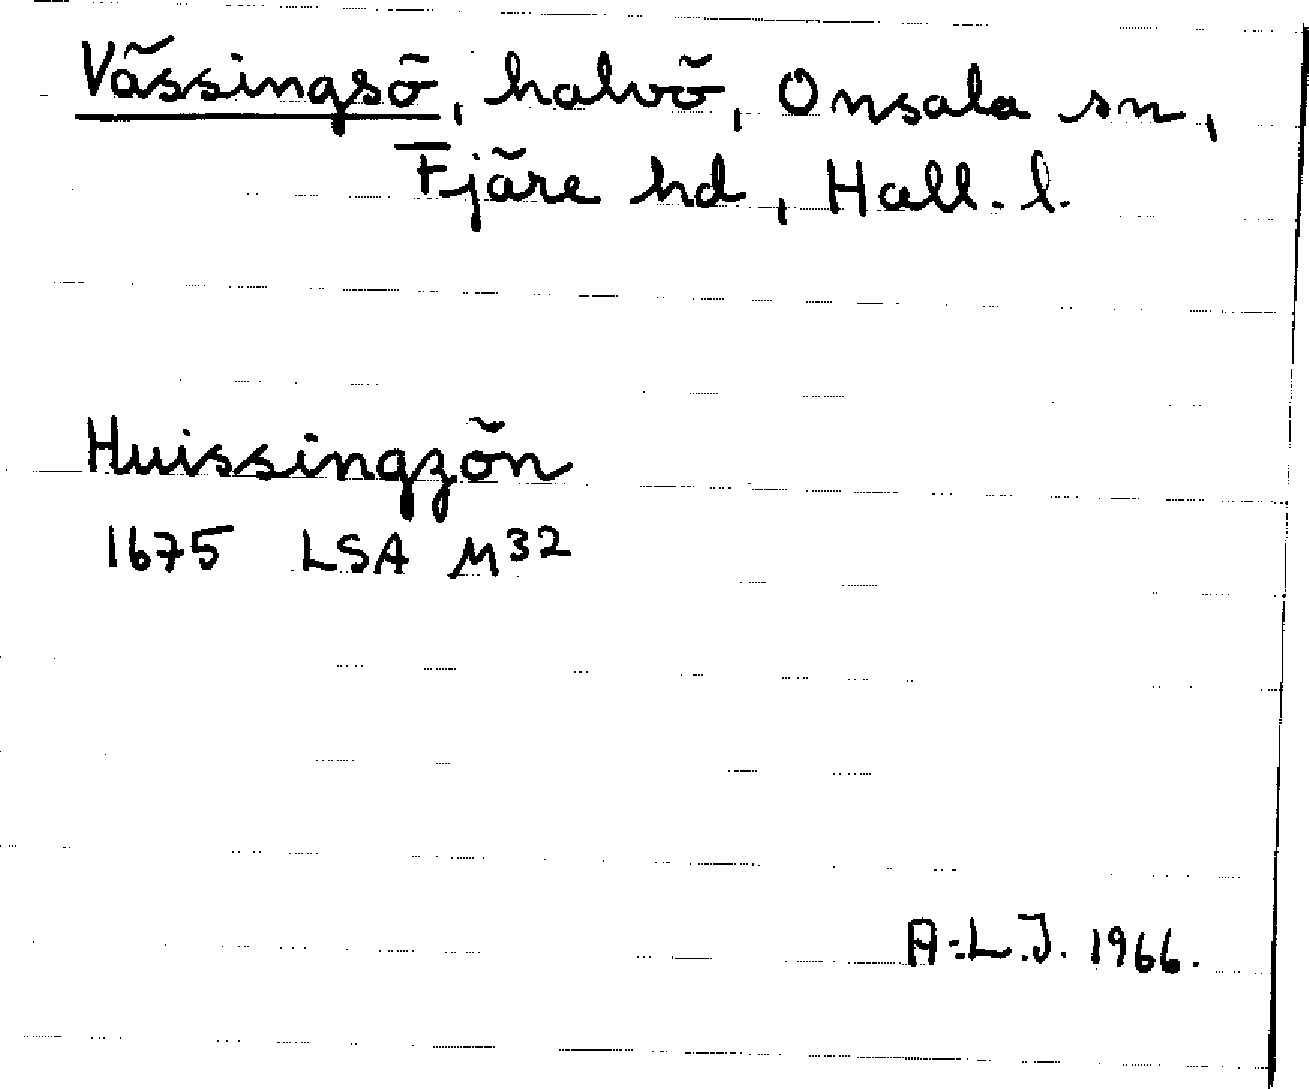 Vässingsö, halvö, Onsala sn,
Fjäre hd, Hall. l.
Huissingzön
1675 LSA M32
A-L.J. 1966.